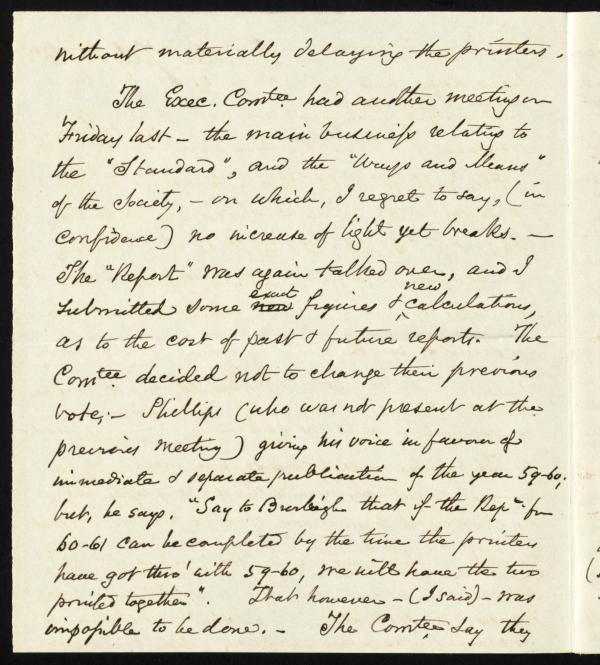 without materially delaying the printers.
The Exec. Comtee had another meeting on
Friday last – the main business relating to
the "Standard", and the "Ways and Means"
of the Society, – on which, I regret to say, (in
confidence) no increase of light yet breaks. –
The "Report" was again talked over, and I
submitted some new exact figures & new calculations,
as to the cost of past & future reports. The
Comtee decided not to change their previous
vote; – Phillips (who was not present at the
previous meeting) giving his voice in favour of
immediate & separate publication of the year 59-60;
but, he says, "Say to Burleigh that if the Rept for
60-61 can be completed by the time the printers
have got thro' with 59-60, we will have the two
printed together". That however – (I said) – was
impossible to be done. – The Comtee say they